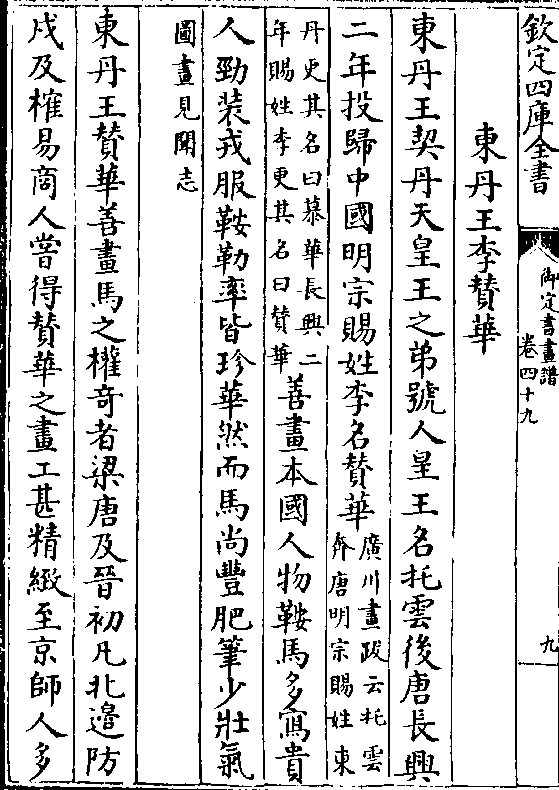 欽定四庫全書
御定書畫譜
卷四十九
九
東丹王李賛華
東丹王契丹天皇王之弟號人皇王名托雲後唐長興
二年投歸中國明宗賜姓李名賛華廣川畫跋云托雲
奔唐明宗賜姓東
丹更其名曰慕華長興二
年賜姓李更其名曰賛華善畫本國人物鞍馬多寫貴
人勁装戎服鞍勒率皆珍華然而馬尚豐肥筆少壮氣
圖畫見聞志
東丹王賛華善畫馬之權竒者梁唐及晉初凡北邉防
戍及榷易商人嘗得賛華之畫工甚精緻至京師人多